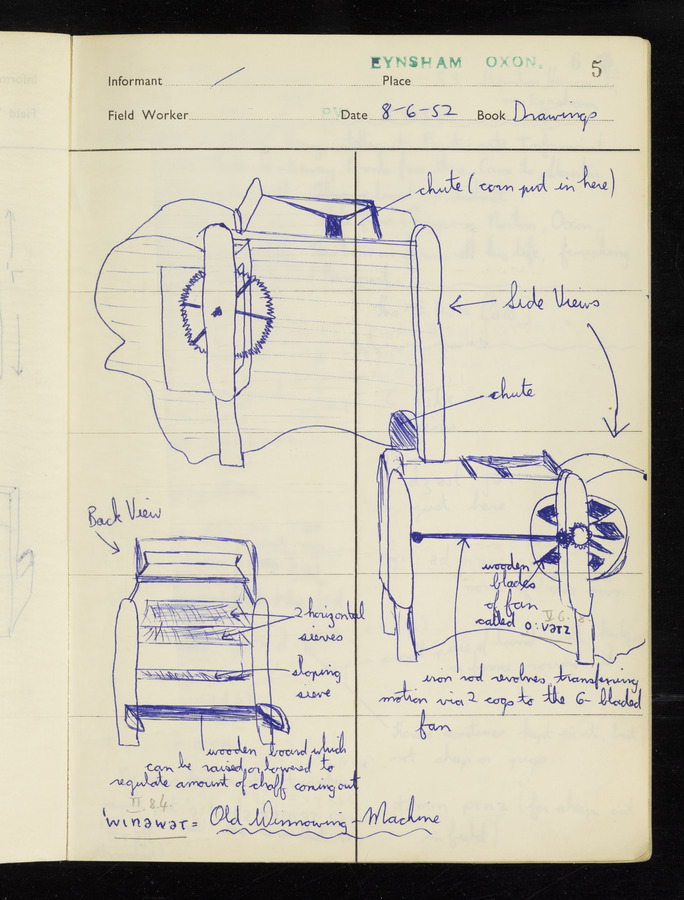 EYNSHAM OXON.
5
Informant
Place
Field Worker
Date 8-6-52
Book Drawings
chute (corn put in here)
Side Views
chute
Back View
wooden
blades
of fan
called o:vəɾz
V.6.8
2 horizontal
sieves
sloping
sieve
iron rod revolves, transferring
motion via 2 cogs to the 6-bladed
fan
wooden board which
can be raised or lowered to
regulate amount of chaff coming out
II.8.4.
'wɪnəwəɾ = Old Winnowing-Machine